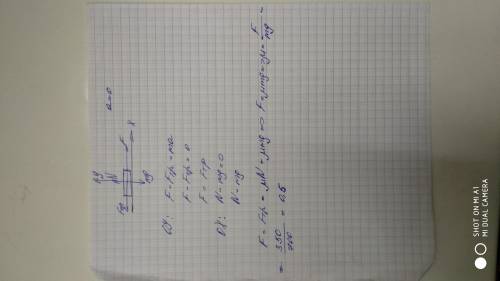 N
F
X
mg
a=0
OX: F-Fтр=ma
F-Fтр=0
F=Fтр
OY: N-mg=0
N=mg
F=Fтр=μN=μmg => F=μmg=>μ=F/mg=
=350/700=0,5
SHOT ON MI A1
MI DUAL CAMERA